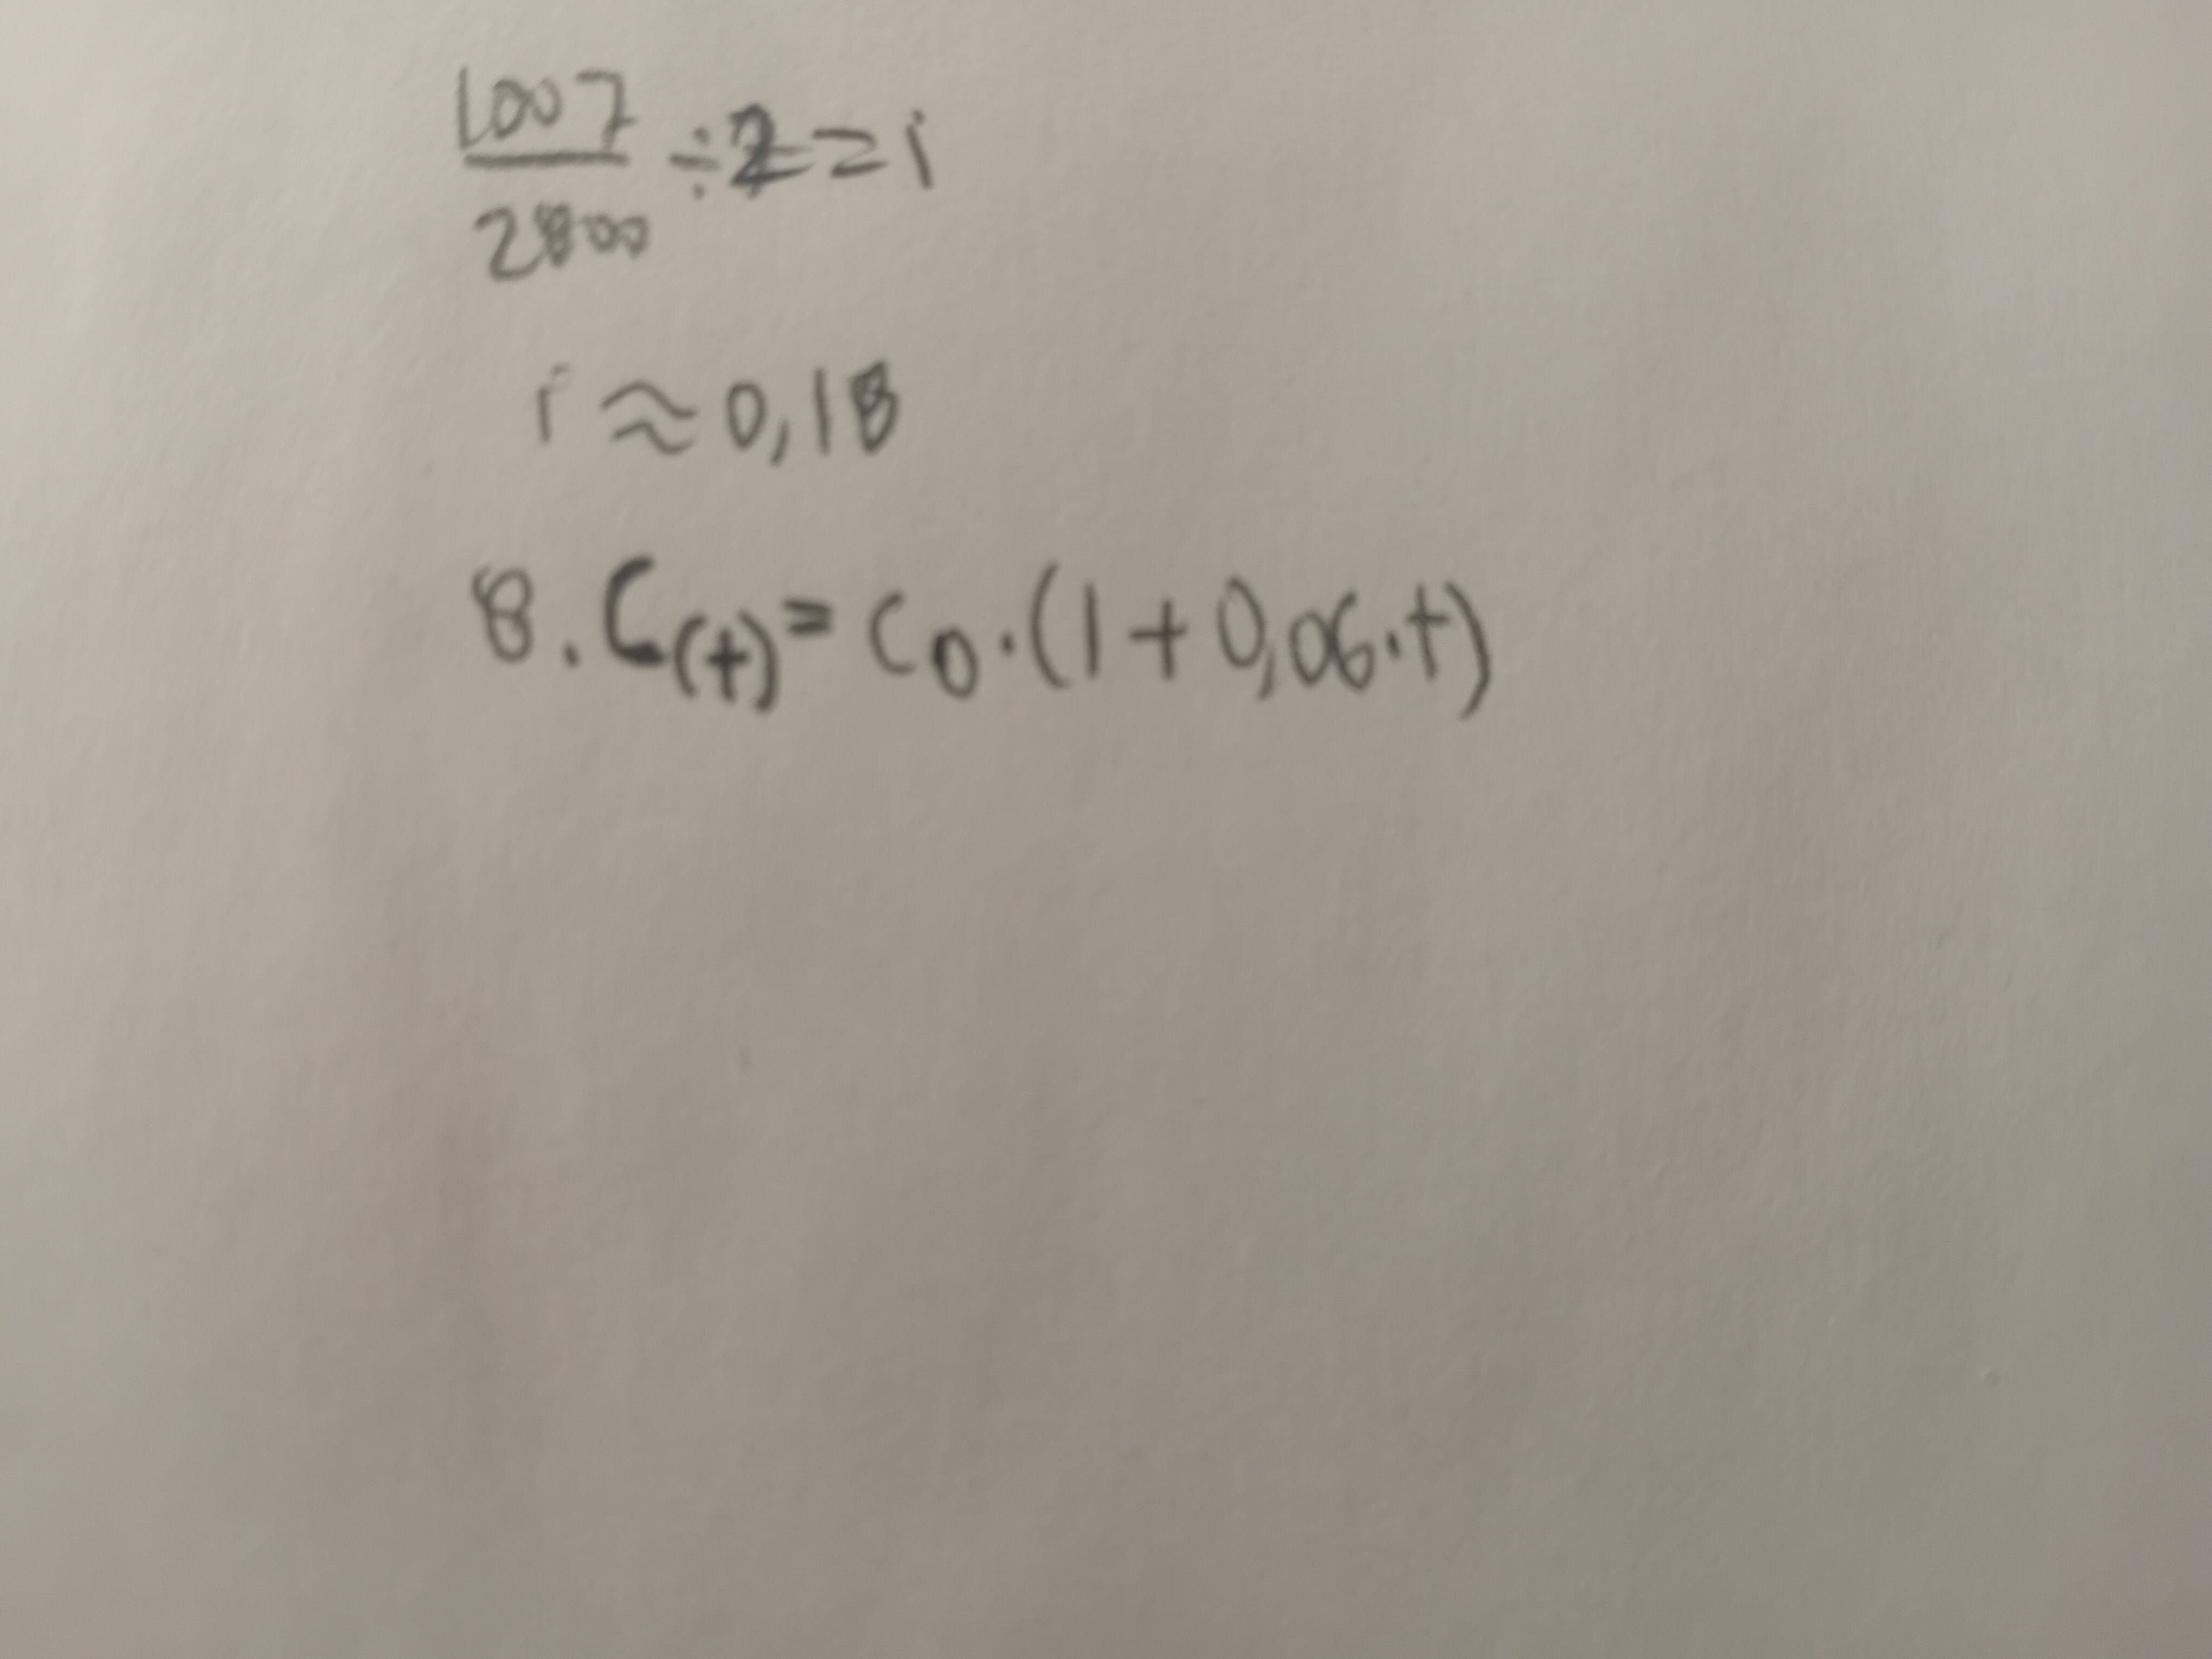 1007/2800 ÷ 2 = i
i ≈ 0,18
8. C(t) = C0 · (1 + 0,06 · t)